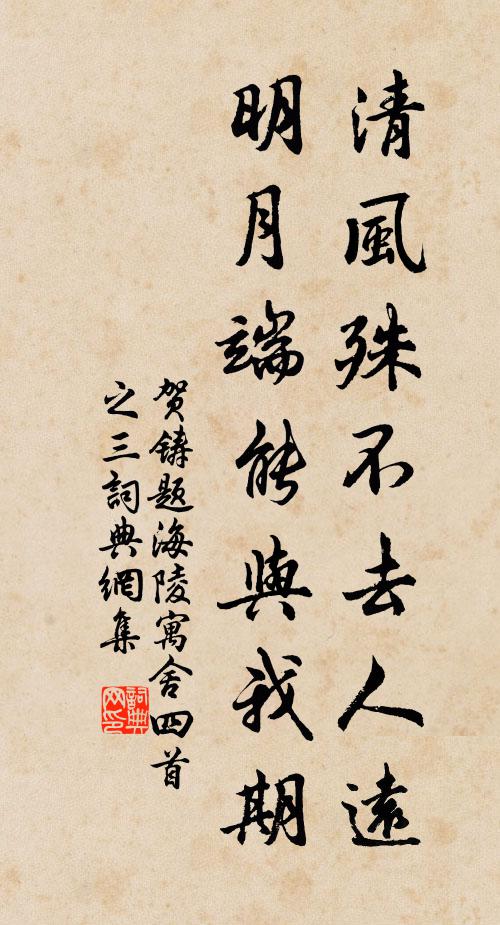 清風殊不去人遠
明月端能與我期
贺鑄题海陵寓舍四首
之三詞典網集
詞典
网印